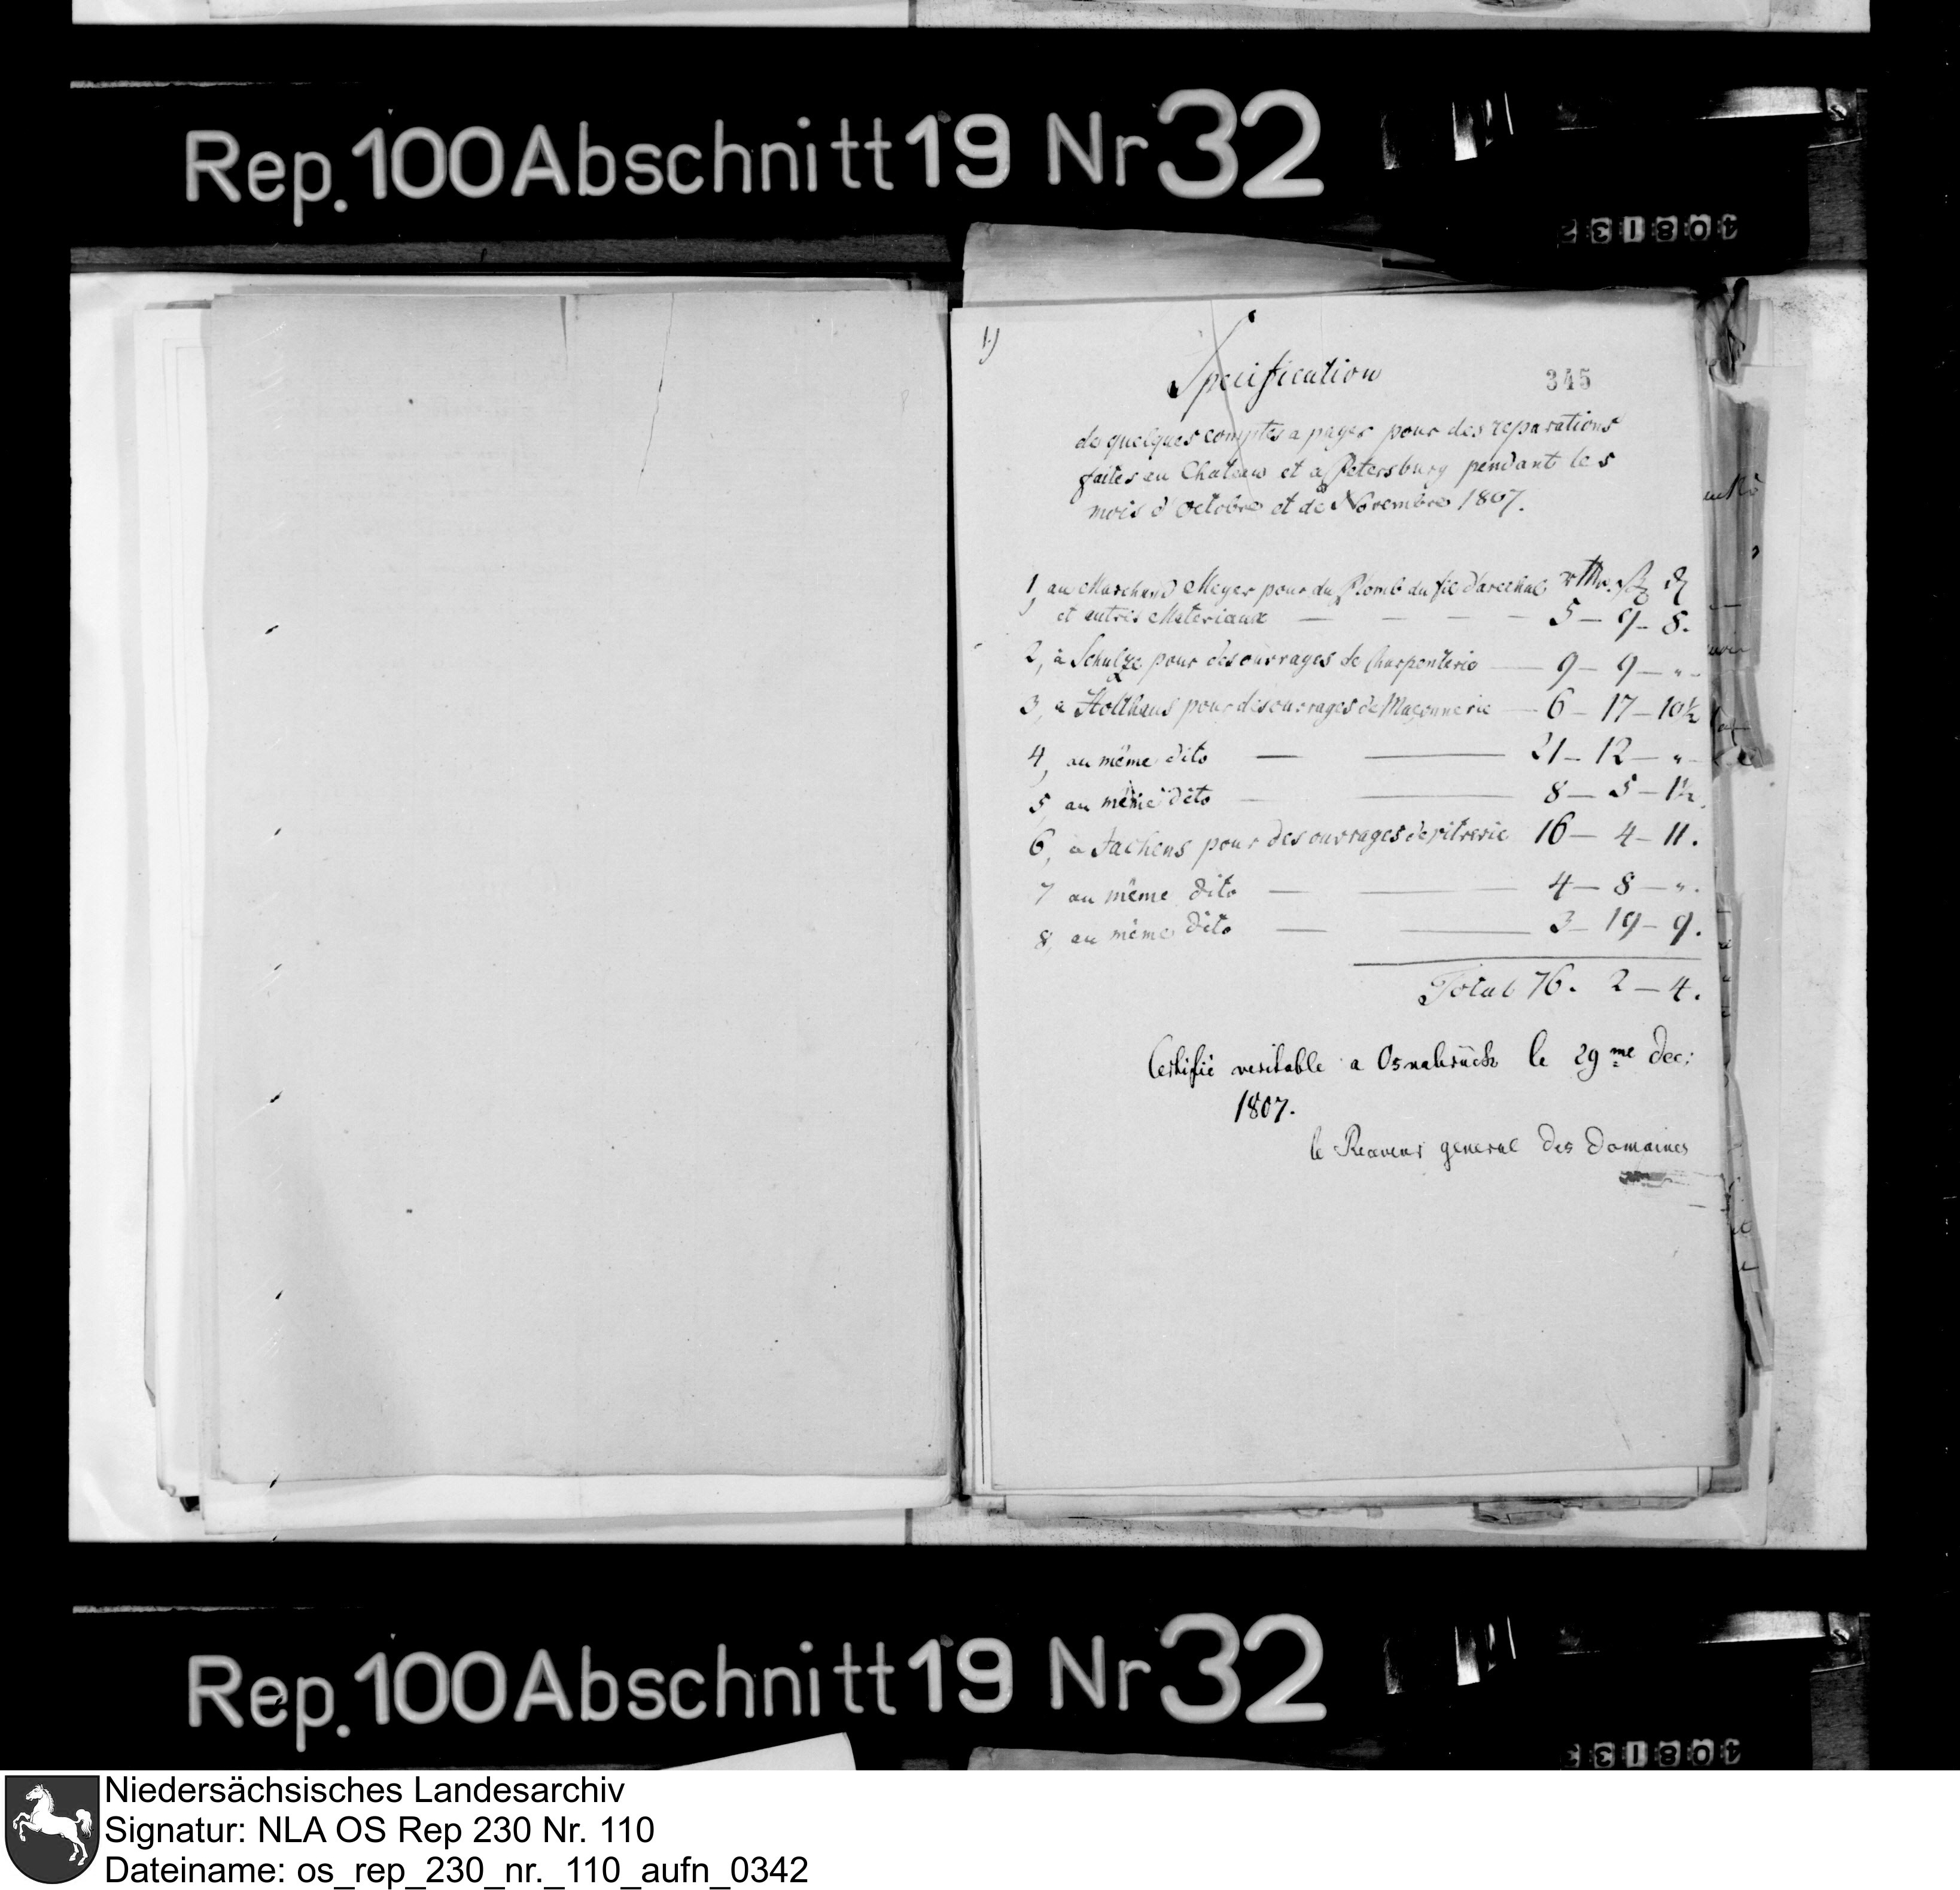 Rep. 100 Abschnitt 19 Nr 32
408132
1)
Specification
345
de quelques comptes a payer pour des reparations
faites au Chateau et a Petersburg pendant les
mois d'Octobre et de Novembre 1807.
rthr. ß d
1, au Marchand Meyer pour du Plomb du fil d'arechal
et autres Materiaux — — — — 5 — 9 — 8.
2, à Schulze pour des ouvrages de Charpenterie — 9 — 9 — "
3, a Holthaus pour des ouvrages de Maçonnerie — 6 — 17 — 10½
4, au même dito — — 21 — 12 — "
5, au même dito — — 8 — 5 — 1½
6, à Jachens pour des ouvrages de vitrerie 16 — 4 — 11.
7 au même dito — — 4 — 8 — ".
8, au même dito — — 3 — 19 — 9.
Total 76. 2 — 4.
Certifié veritable a Osnabrück le 29me Dec:
1807.
le Receveur general des Domaines
Rep. 100 Abschnitt 19 Nr 32
408133
Niedersächsisches Landesarchiv
Signatur: NLA OS Rep 230 Nr. 110
Dateiname: os_rep_230_nr._110_aufn_0342